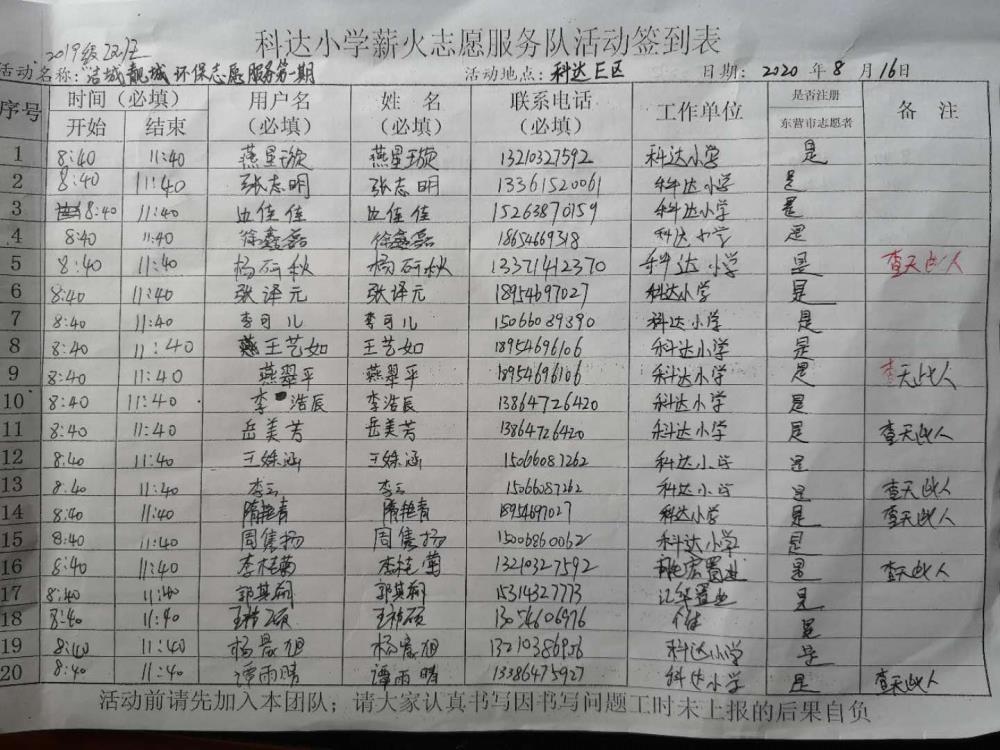 科达小学薪火志愿服务队活动签到表
2019级
活动名称：洁城靓城环保志愿服务第一期 活动地点：科达E区 日期：2020年8月16日
序号 时间（必填） 用户名 姓名 联系电话 工作单位 是否注册 备注
开始 结束 （必填） （必填） （必填） 东营市志愿者
1 8:40 11:40 燕星璇 燕星璇 13210327592 科达小学 是
2 8:40 11:40 张志明 张志明 13361520061 科达小学 是
3 8:40 11:40 佳佳 佳佳 15263870159 科达小学 是
4 8:40 11:40 徐鑫磊 徐鑫磊 18654669318 科达小学 是
5 8:40 11:40 杨研秋 杨研秋 13371412370 科达小学 是 查无此人
6 8:40 11:40 张译元 张译元 18954697027 科达小学 是
7 8:40 11:40 李可儿 李可儿 15066089390 科达小学 是
8 8:40 11:40 王艺如 王艺如 18954696106 科达小学 是
9 8:40 11:40 燕翠平 燕翠平 18954696106 科达小学 是 查无此人
10 8:40 11:40 李浩辰 李浩辰 13864726420 科达小学 是
11 8:40 11:40 岳美芳 岳美芳 13864726420 科达小学 是 查无此人
12 8:40 11:40 王姝涵 王姝涵 15066087262 科达小学 是
13 8:40 11:40 李云 李云 15066087262 科达小学 是 查无此人
14 8:40 11:40 隋艳青 隋艳青 18954697027 科达小学 是 查无此人
15 8:40 11:40 周隽扬 周隽扬 15006860062 科达小学 是
16 8:40 11:40 李桂菊 李桂菊 13210327592 置业 是 查无此人
17 8:40 11:40 郭其 郭其 15314327773 置业 是
18 8:40 11:40 王硕 王硕 13054606976 是
19 8:40 11:40 杨旭 杨旭 13210386956 科达小学 是
20 8:40 11:40 谭雨晴 谭雨晴 13386475927 科达小学 是 查无此人
活动前请先加入本团队；请大家认真书写因书写问题工时未上报的后果自负